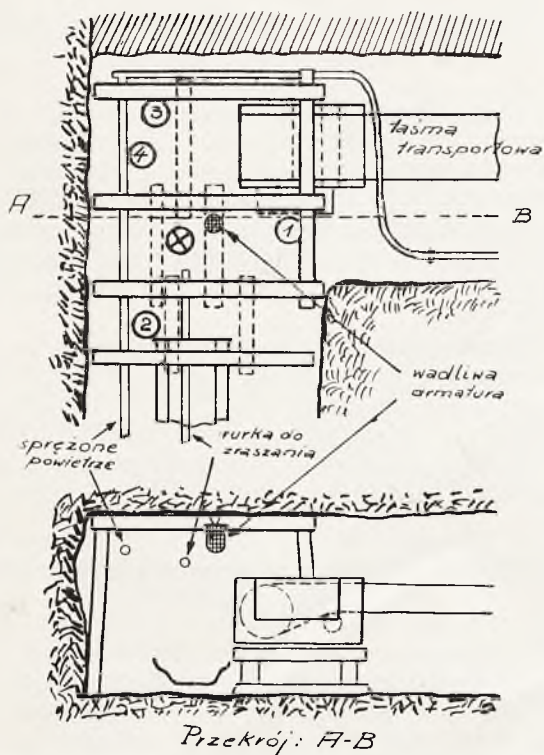 3
4
taśma
transportowa
A
B
1
2
wadliwa
armatura
sprężone
powietrze
rurka do
zraszania
Przekrój: A-B